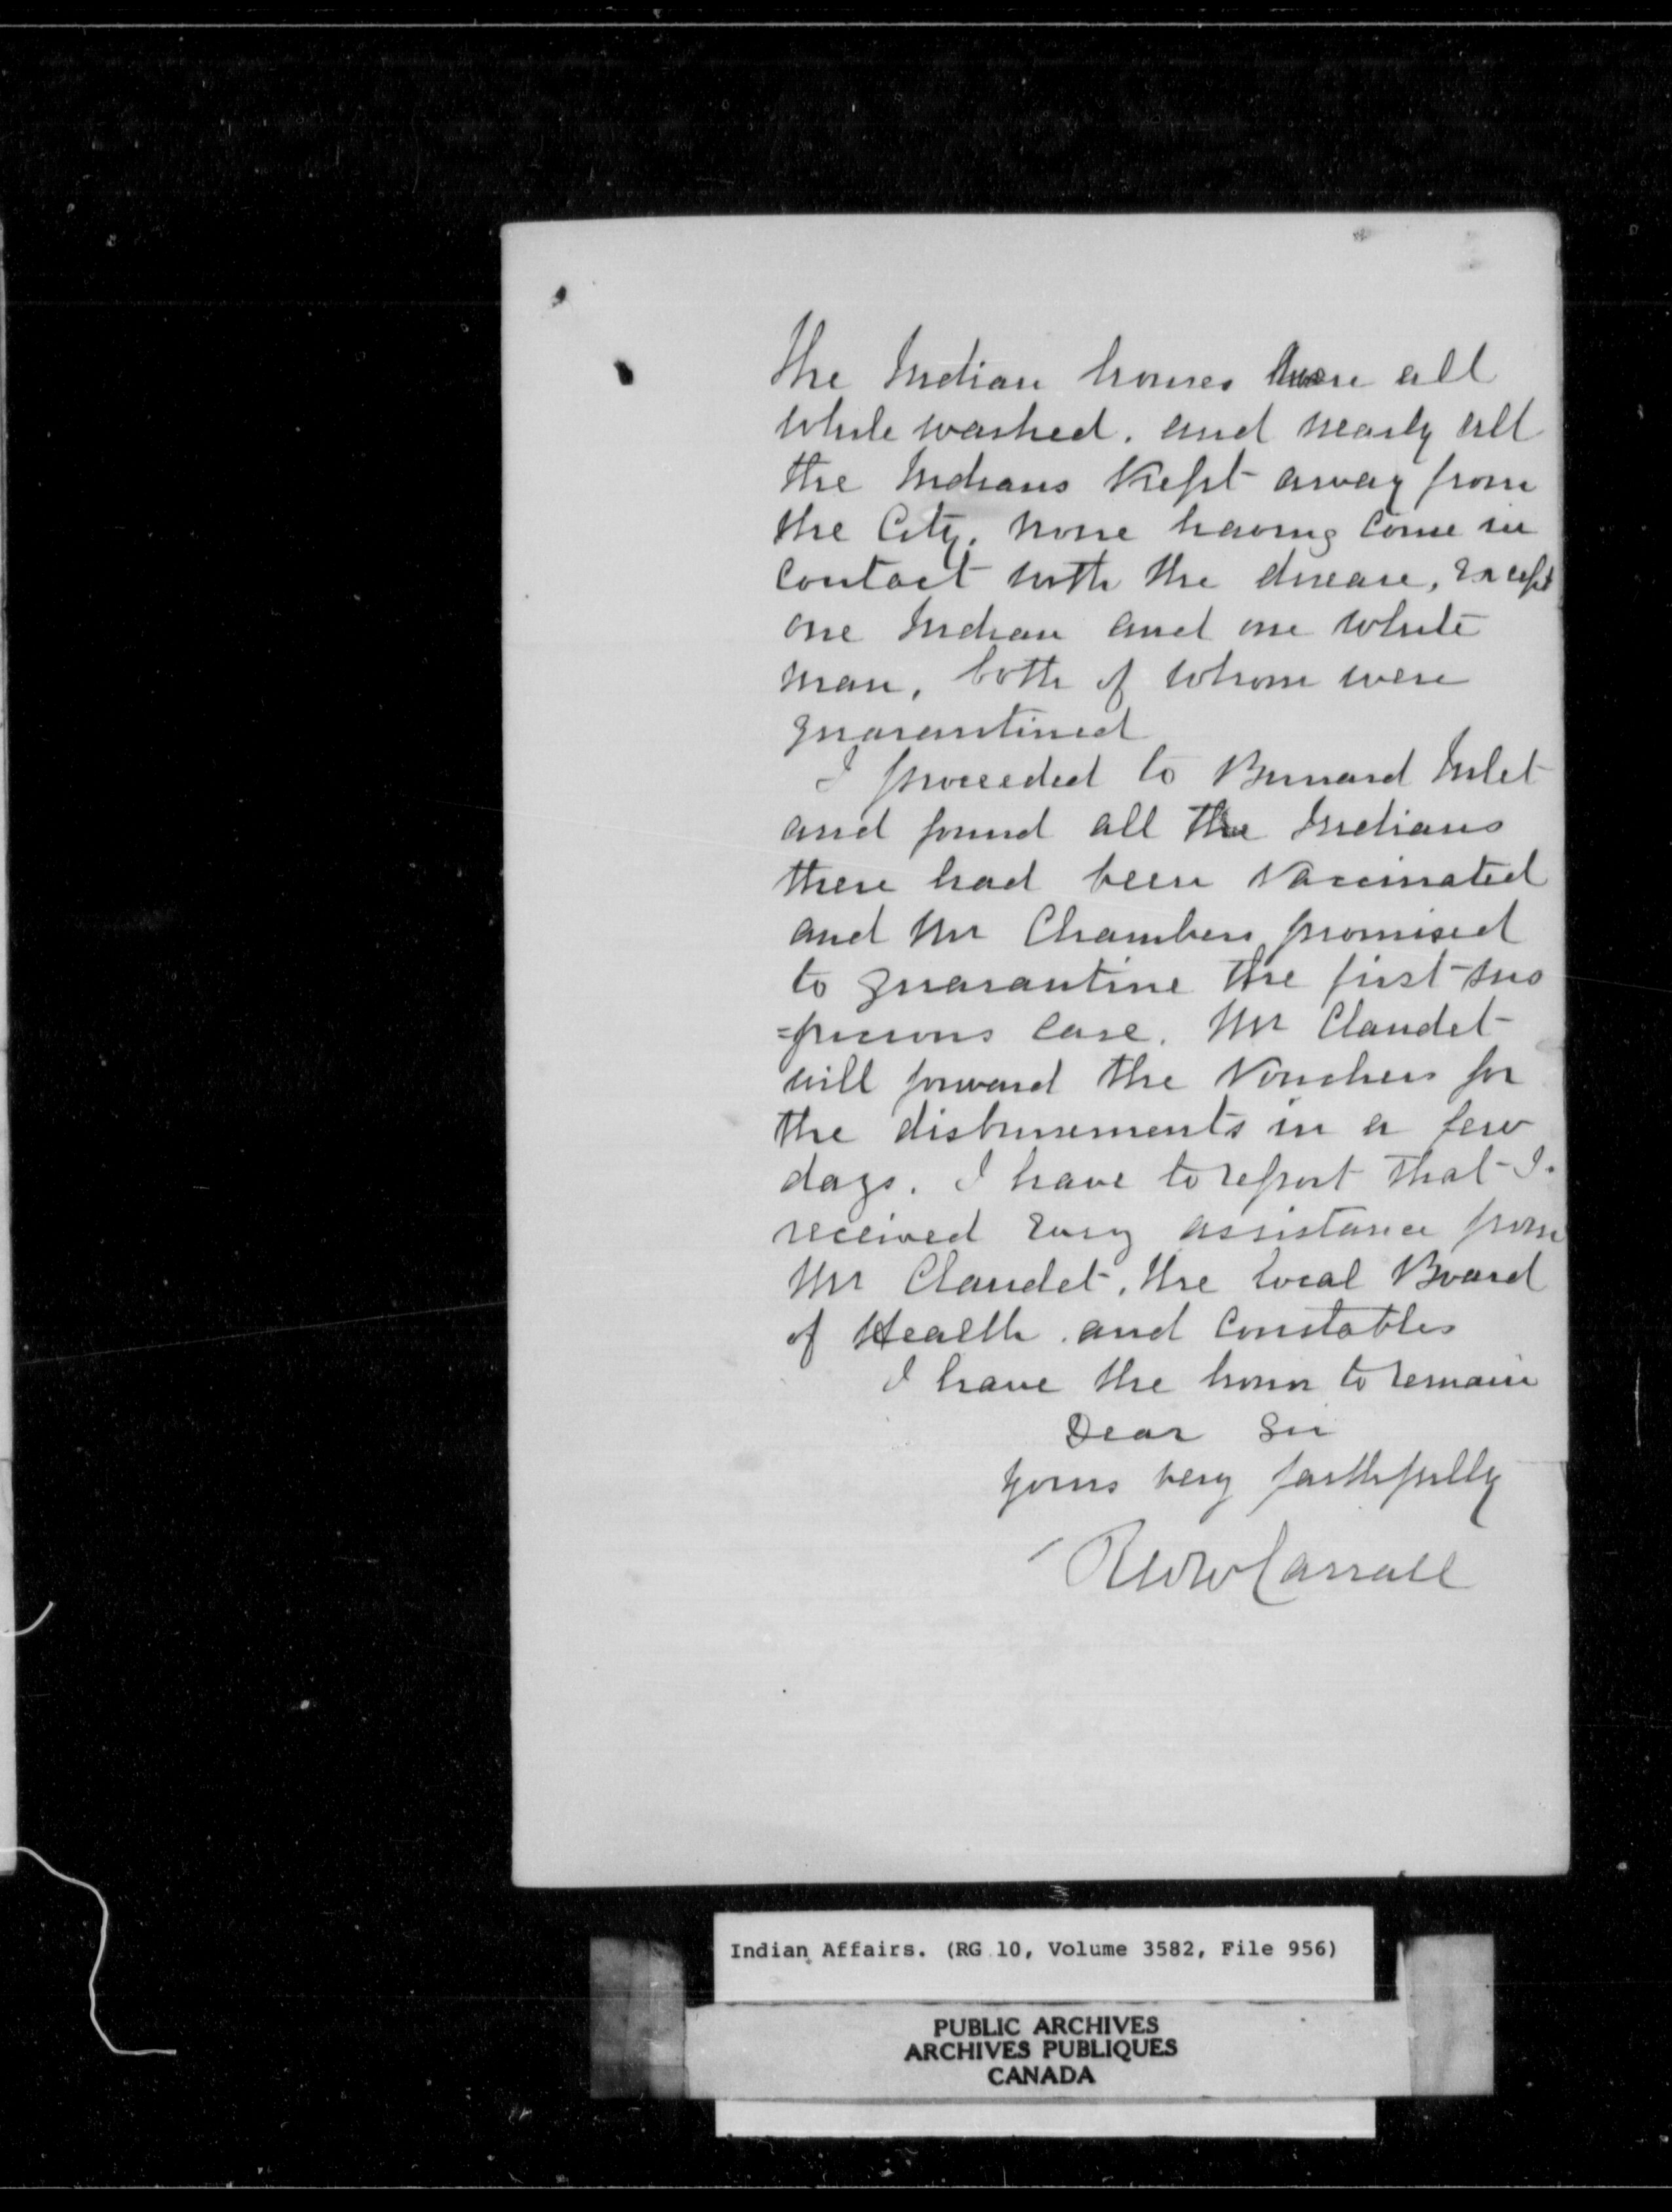 The Indian houses were all
white washed. and nearly all
the Indians kept away from
the City. none having come in
contact with the disease, except
one Indian and one white
man, both of whom were
quarantined
I proceeded to Burrard Inlet
and found all the Indians
there had been vaccinated
and Mr Chambers promised
to quarantine the first sus
=picious case. Mr Claudet
will forward the Vouchers for
the disbursements in a few
days. I have to report that I.
received every assistance from
Mr Claudet, the local Board
of Health. and Constables
I have the honor to remain
Dear Sir
yours very faithfully
R W W Carrall
Indian Affairs. (RG 10, Volume 3582, File 956)
PUBLIC ARCHIVES
ARCHIVES PUBLIQUES
CANADA